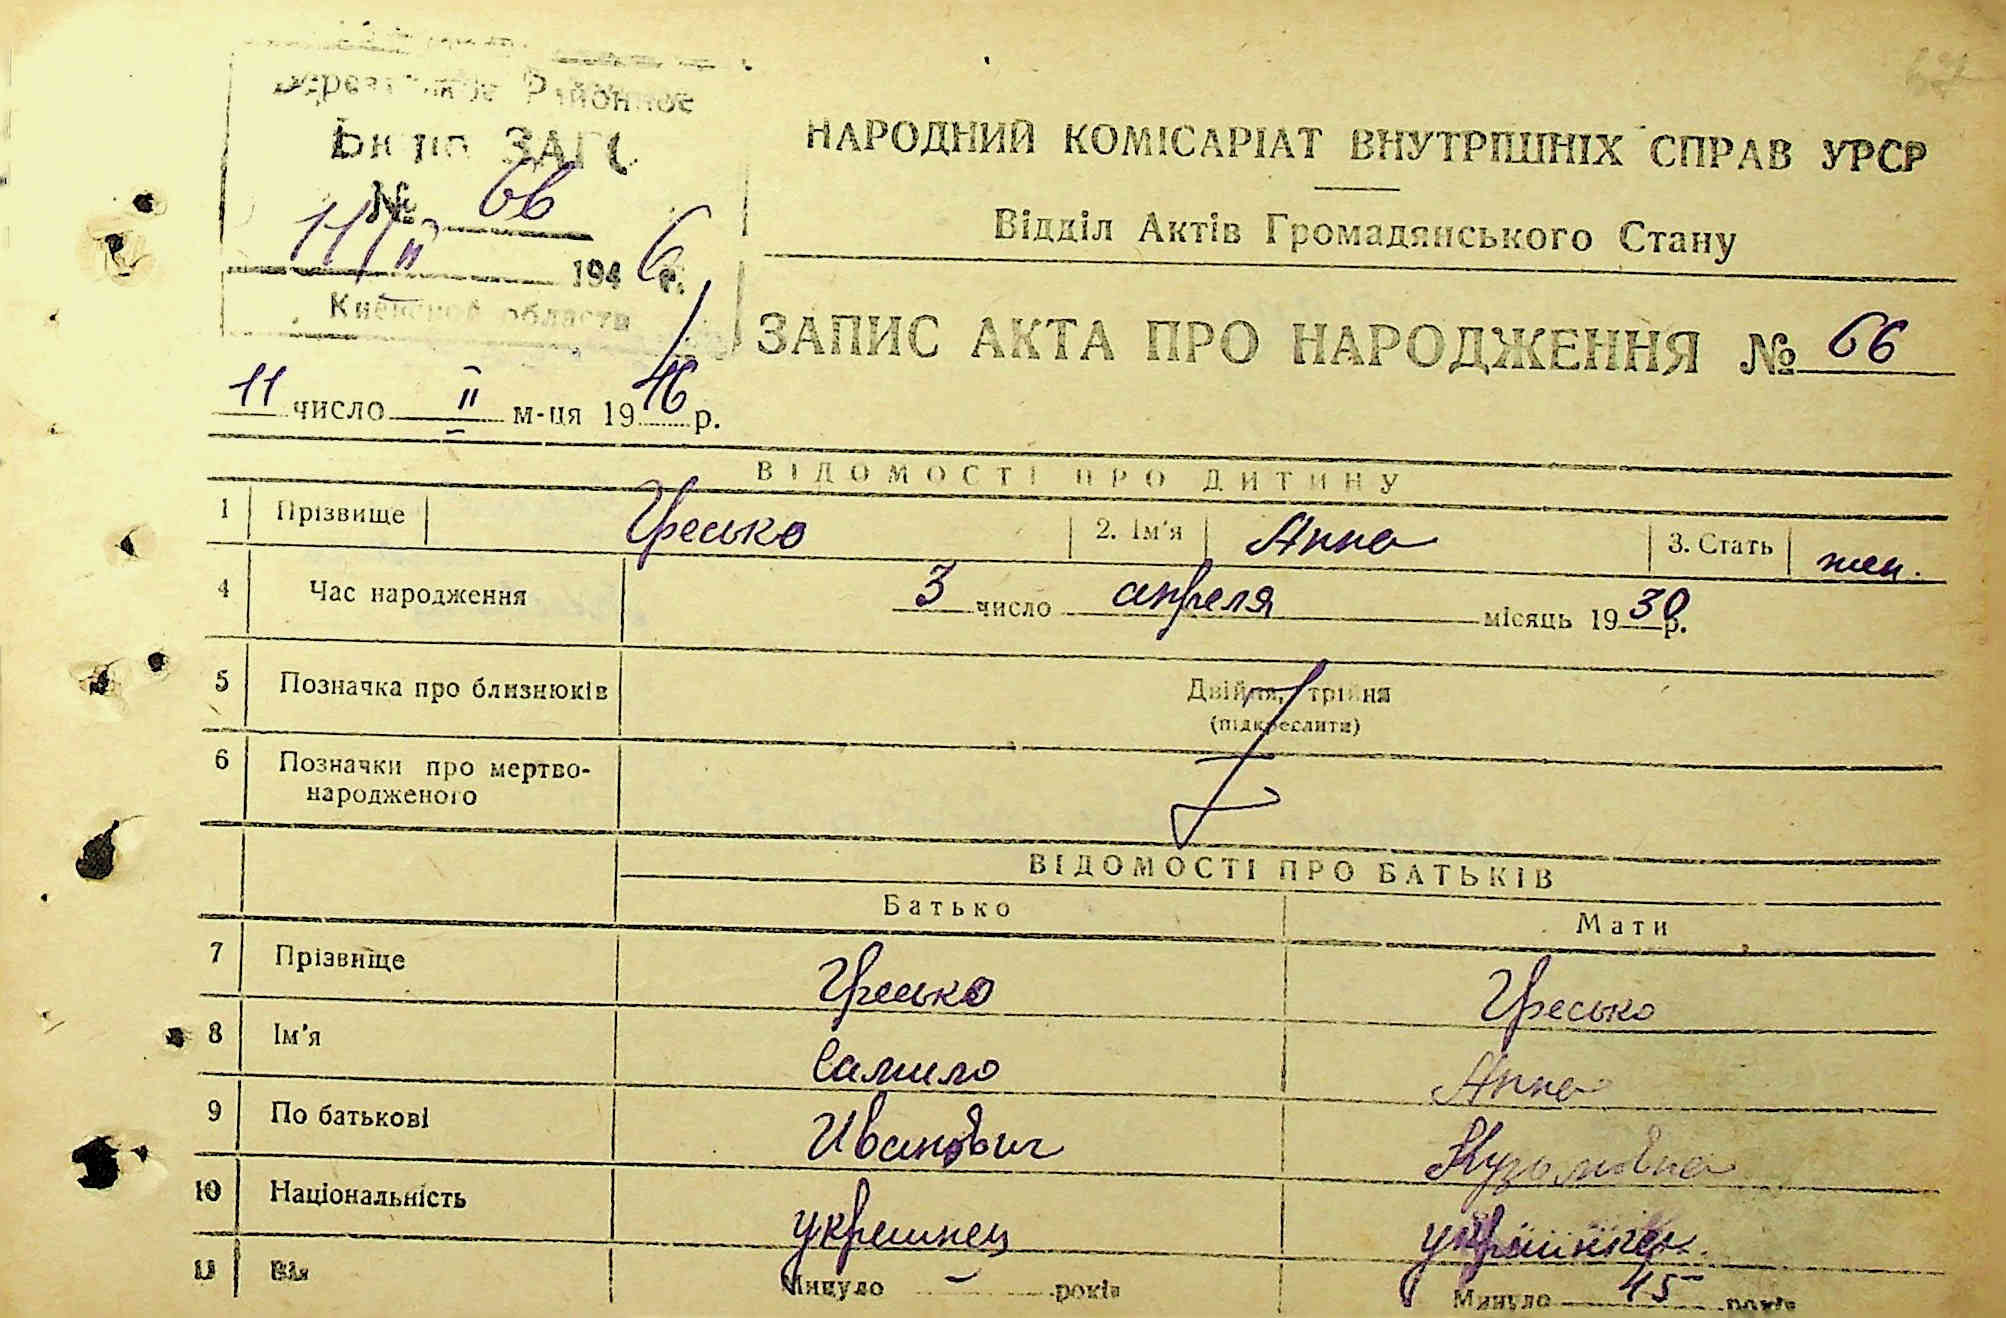 Районное
Бюро ЗАГС
№ 66
11/II 1946 г.
Киевской области
НАРОДНИЙ КОМІСАРІАТ ВНУТРІШНІХ СПРАВ УРСР
Відділ Актів Громадянського Стану
ЗАПИС АКТА ПРО НАРОДЖЕННЯ № 66
11 число II м-ця 1946 р.
ВІДОМОСТІ ПРО ДИТИНУ
1 Прізвище Гресько 2. Ім'я Анна 3. Стать жен.
4 Час народження 3 число апреля місяць 1930 р.
5 Позначка про близнюків Двійня, трійня
(підкреслити)
6 Позначки про мертво-
народженого
ВІДОМОСТІ ПРО БАТЬКІВ
Батько Мати
7 Прізвище Гресько Гресько
8 Ім'я Самило Анна
9 По батькові Иванович Кузьмовна
10 Національність украинец украинка
11 Вік Минуло — років Минуло 45 років